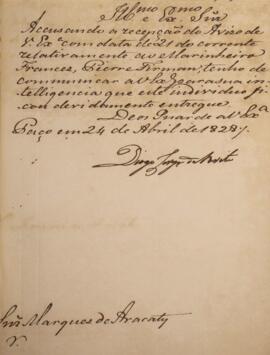 Illmo. e Exmo. Snr.
Accusando a recepção do Avizo de
V. Exa. com data de 21 do corrente
relativamente ao Marinheiro
Francez, Pierre Firman, tenho de
communicar a V. Exa. para sua in-
telligencia que este individuo fi-
cou devidamente entregue.
Deos Guarde a V. Exa.
Paço em 24 de Abril de 1828.
Diogo Jorge de Brito
Snr. Marquez de Aracaty